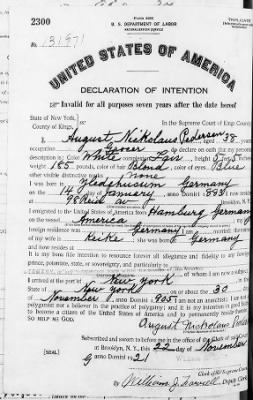 Form 2203
2300
U. S. DEPARTMENT OF LABOR
NATURALIZATION SERVICE
No. 131971
UNITED STATES OF AMERICA
DECLARATION OF INTENTION
Invalid for all purposes seven years after the date hereof
State of New York,
County of Kings,
In the Supreme Court of Kings County
I, August Nickolaus Pedersen, aged 38
occupation Grocer, do declare on oath that my personal
description is: Color White, complexion Fair, height 5
weight 165, color of hair Blond, color of eyes Blue
other visible distinctive marks none
I was born in Germany
on the 14 day of January, anno Domini 1883
at 98 Reid av, Brooklyn, N. Y.
I emigrated to the United States of America from Hamburg Germany
the vessel America
foreign residence was Germany; I am married;
of my wife is Keike; she was born Germany
and now resides
It is my bona fide intention to renounce forever all allegiance and fidelity to any foreign
prince, potentate, state, or sovereignty, and particularly to
of whom I am now subject
I arrived at the port of New York
State of New York, on or about the 30
of November, anno Domini 1905; I am not an anarchist; I am not
polygamist nor a believer in the practice of polygamy; and it is my intention in good
to become a citizen of the United States of America and to permanently reside therein:
SO HELP ME GOD.
August Nickolaus
Subscribed and sworn to before me in the office of the Clerk of
at Brooklyn, N. Y., this 22 day of November
anno Domini 1921
[SEAL]
Clerk of the Supreme Court.
By William J.